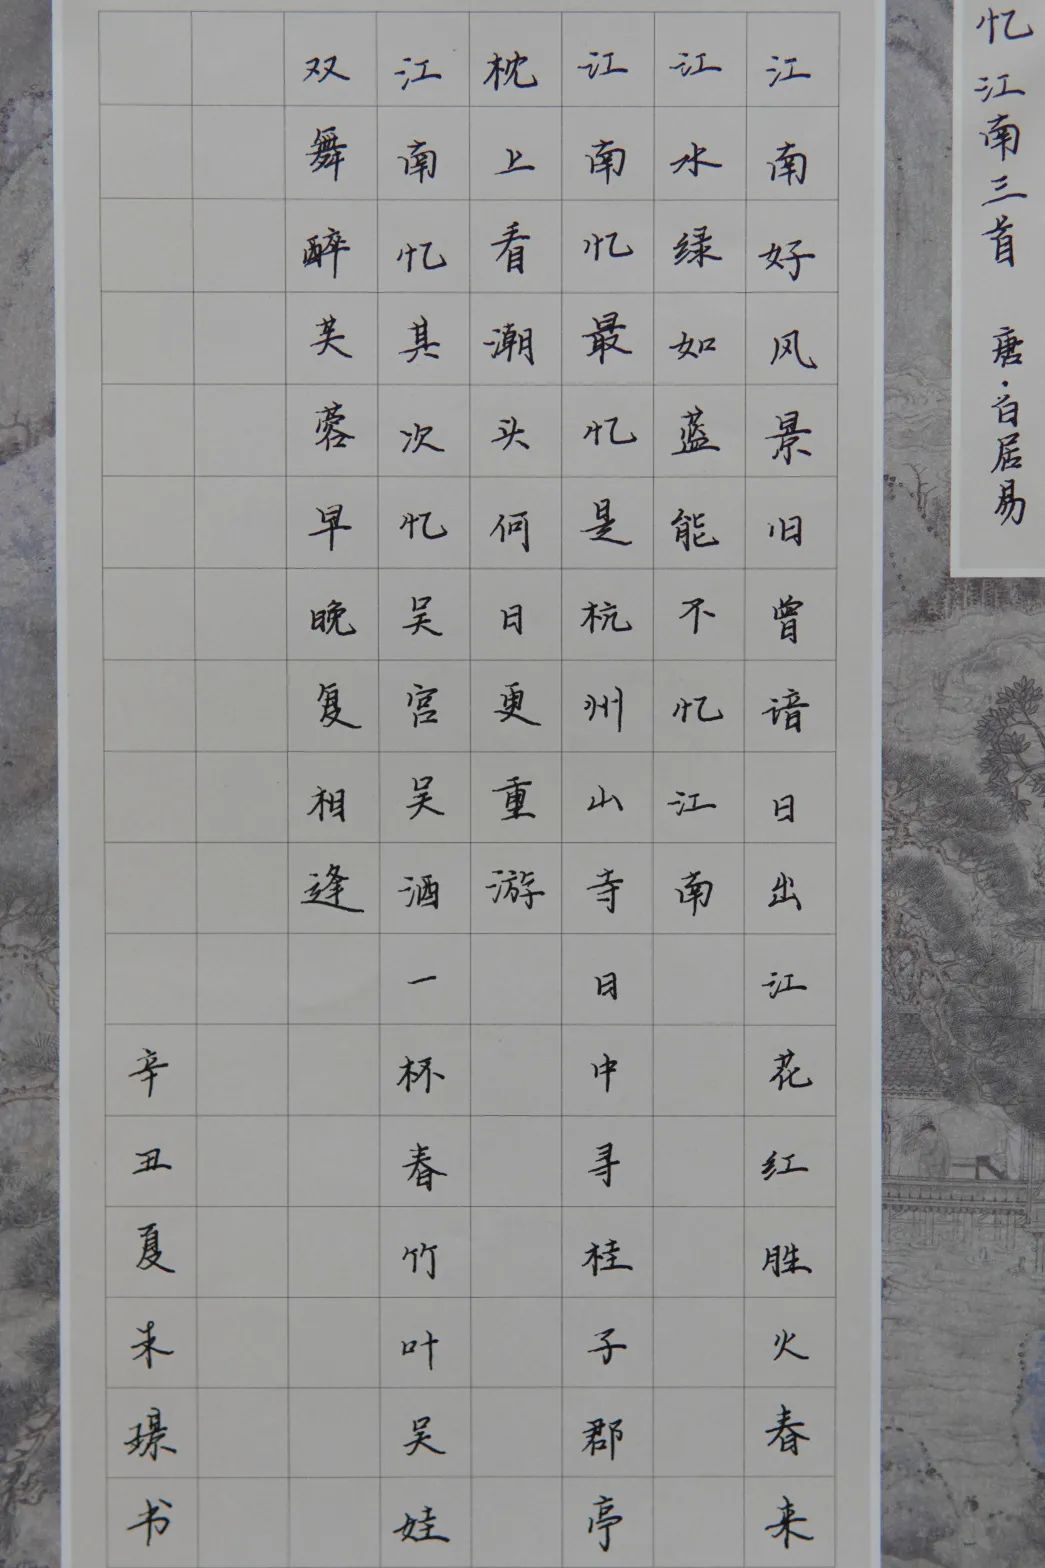 忆江南三首 唐·白居易
江南好风景旧曾谙日出江花红胜火春来
江水绿如蓝能不忆江南
江南忆最忆是杭州山寺日中寻桂子郡亭
枕上看潮头何日更重游
江南忆其次忆吴宫吴酒一杯春竹叶吴娃
双舞醉芙蓉早晚复相逢
辛丑夏书